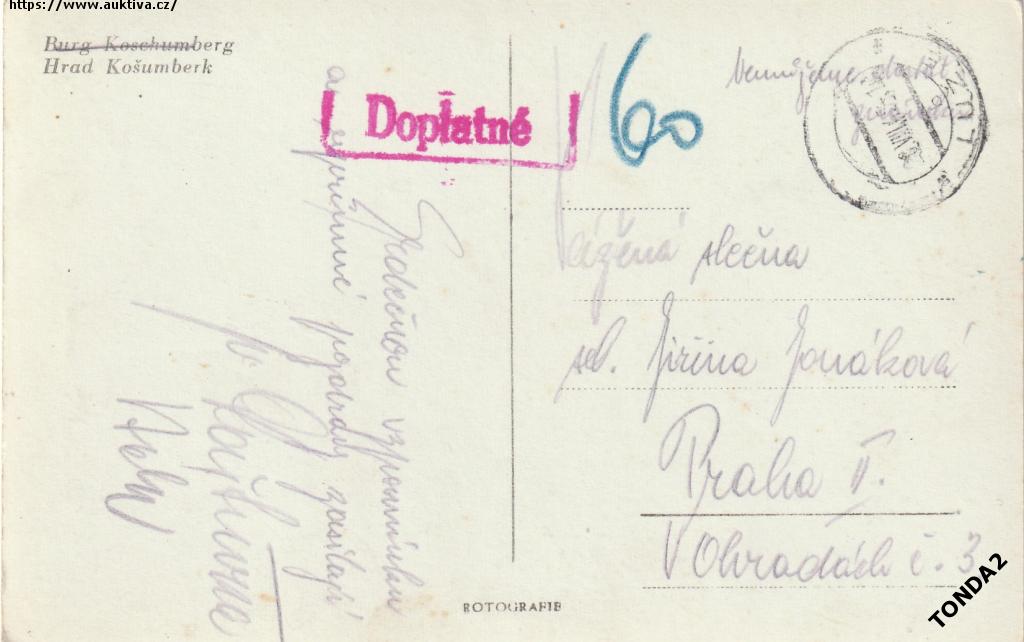 https://www.auktiva.cz/
Burg Koschumberg
Hrad Košumberk
Doplatné
60
Nemůžeme dostat
známku
LUŽE
Vážená slečna
sl. Jiřina Jonáková
Praha II.
V Ohradách č. 3
Srdečnou vzpomínku
a upřímné pozdravy zasílají
ROTOGRAFIE
TONDA2